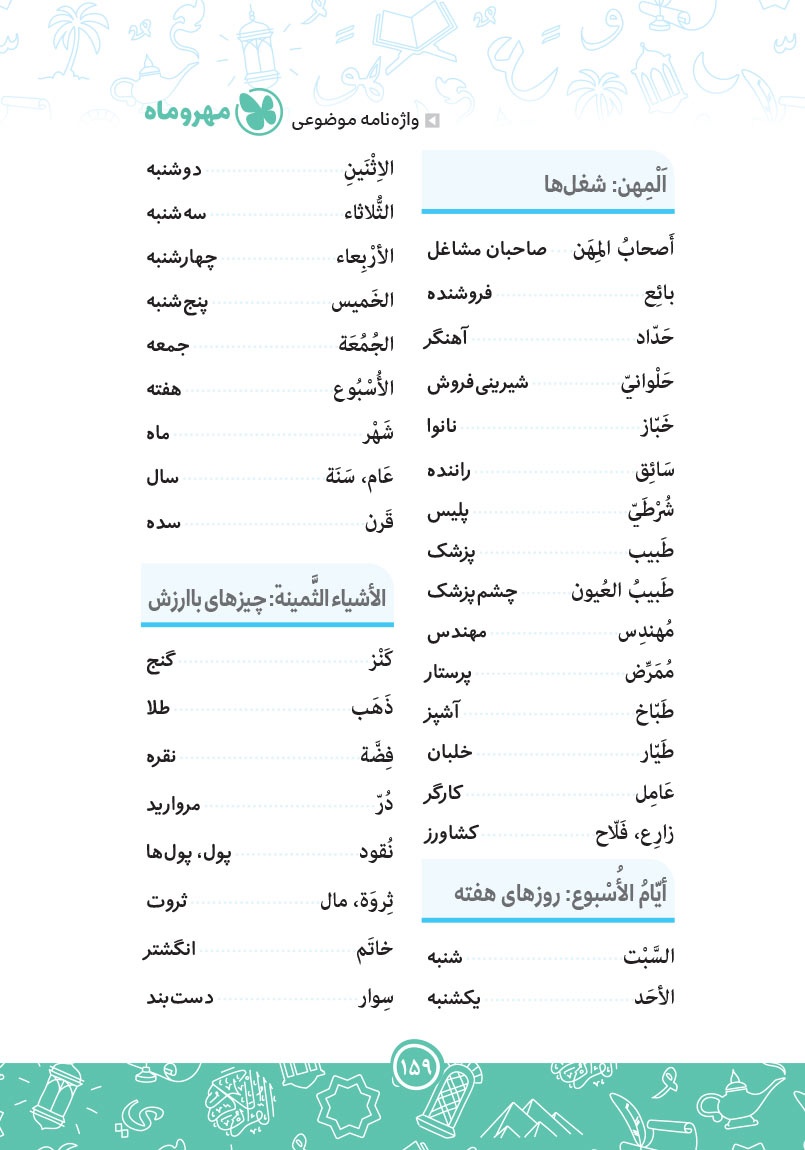 واژه‌نامه موضوعی مهروماه
اَلْمِهن: شغل‌ها
أَصحابُ المِهَن صاحبان مشاغل
بائِع فروشنده
حَدّاد آهنگر
حَلْوانيّ شیرینی‌فروش
خَبّاز نانوا
سَائِق راننده
شُرْطَيّ پلیس
طَبیب پزشک
طَبیبُ العُیون چشم‌پزشک
مُهندِس مهندس
مُمَرِّض پرستار
طَبّاخ آشپز
طَیّار خلبان
عَامِل کارگر
زارِع، فَلّاح کشاورز
أیّامُ الأُسْبوع: روزهای هفته
السَّبْت شنبه
الأحَد یکشنبه
الاِثْنَینِ دوشنبه
الثُّلاثاء سه‌شنبه
الأرْبِعاء چهارشنبه
الخَمیس پنج‌شنبه
الجُمُعَة جمعه
الأُسْبُوع هفته
شَهْر ماه
عَام، سَنَة سال
قَرن سده
الأشیاء الثَّمینة: چیزهای باارزش
کَنْز گنج
ذَهَب طلا
فِضَّة نقره
دُرّ مروارید
نُقود پول، پول‌ها
ثِروَة، مال ثروت
خاتَم انگشتر
سِوار دست‌بند
۱۵۹